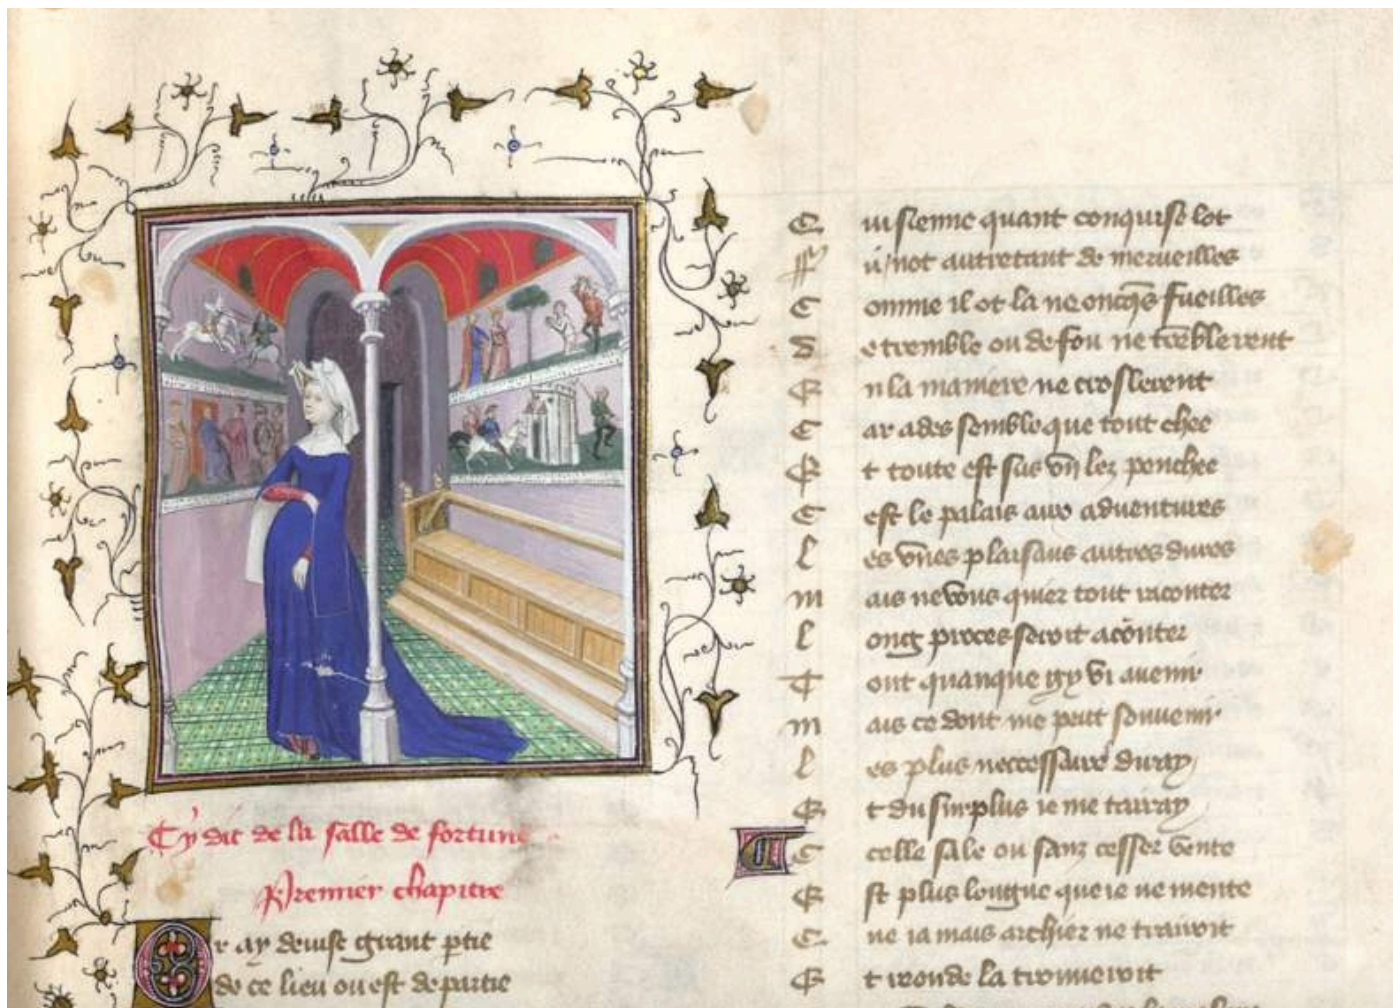 Cy dit de la salle de fortune
Premier chapitre
Or ay devise grant ptie
de ce lieu ou est departie
C ui sienne quant conquise lot
ny not autretant de merveilles
C omme il ot la ne oncqs fueilles
D e tremble ou de fou ne treblerent
E n la maniere ne croslerent
C ar ades semble que tout chee
E t toute est sus vn lez penchee
C est le palais aux adventures
L es vnes plaisans autres dures
M ais ne vous quier tout raconter
L ong proces seroit a conter
T out quanque gy vi avenir
M ais ce dont me peut souvenir
L es plus neccessaire diray
E t du surplus ie me tairay
C celle sale ou sanz cesser vente
E st plus longue que ie ne mente
C ne ia mais archier ne trairoit
E t ronde la trouveroit